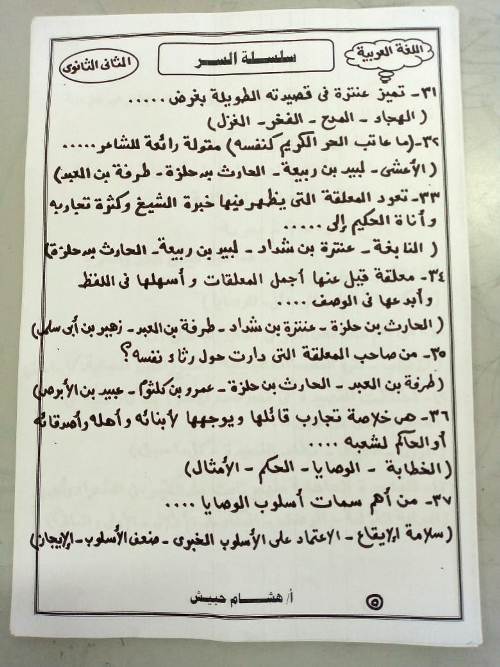 اللغة العربية
سلسلة السر
الثانى الثانوى
٣١- تميز عنترة فى قصيدته الطويلة بغرض .....
( الهجاء - المدح - الفخر - الغزل)
٣٢-(ما عاتب الحر الكريم كنفسه) مقولة رائعة للشاعر .....
(الأعشى - لبيد بن ربيعة - الحارث بن حلزة - طرفة بن العبد)
٣٣- تعود المعلقة التى يظهر فيها خبرة الشيخ وكثرة تجاربه
وأناة الحكيم إلى .....
( النابغة - عنترة بن شداد - لبيد بن ربيعة - الحارث بن حلزة)
٣٤- معلقة قيل عنها أجمل المعلقات وأسهلها فى اللفظ
وأبدعها فى الوصف ....
(الحارث بن حلزة - عنترة بن شداد - طرفة بن العبد - زهير بن أبى سلمى)
٣٥- من صاحب المعلقة التى دارت حول رثاء نفسه؟
(طرفة بن العبد - الحارث بن حلزة - عمرو بن كلثوم - عبيد بن الأبرص)
٣٦- هى خلاصة تجارب قائلها ويوجهها لأبنائه وأهله وأصدقائه
أو الحاكم لشعبه ....
(الخطابة - الوصايا - الحكم - الأمثال)
٣٧- من أهم سمات أسلوب الوصايا ....
(سلامة الإيقاع - الاعتماد على الأسلوب الخبرى - ضعف الأسلوب - الإيجاز)
أ/ هشام حبيش
٥